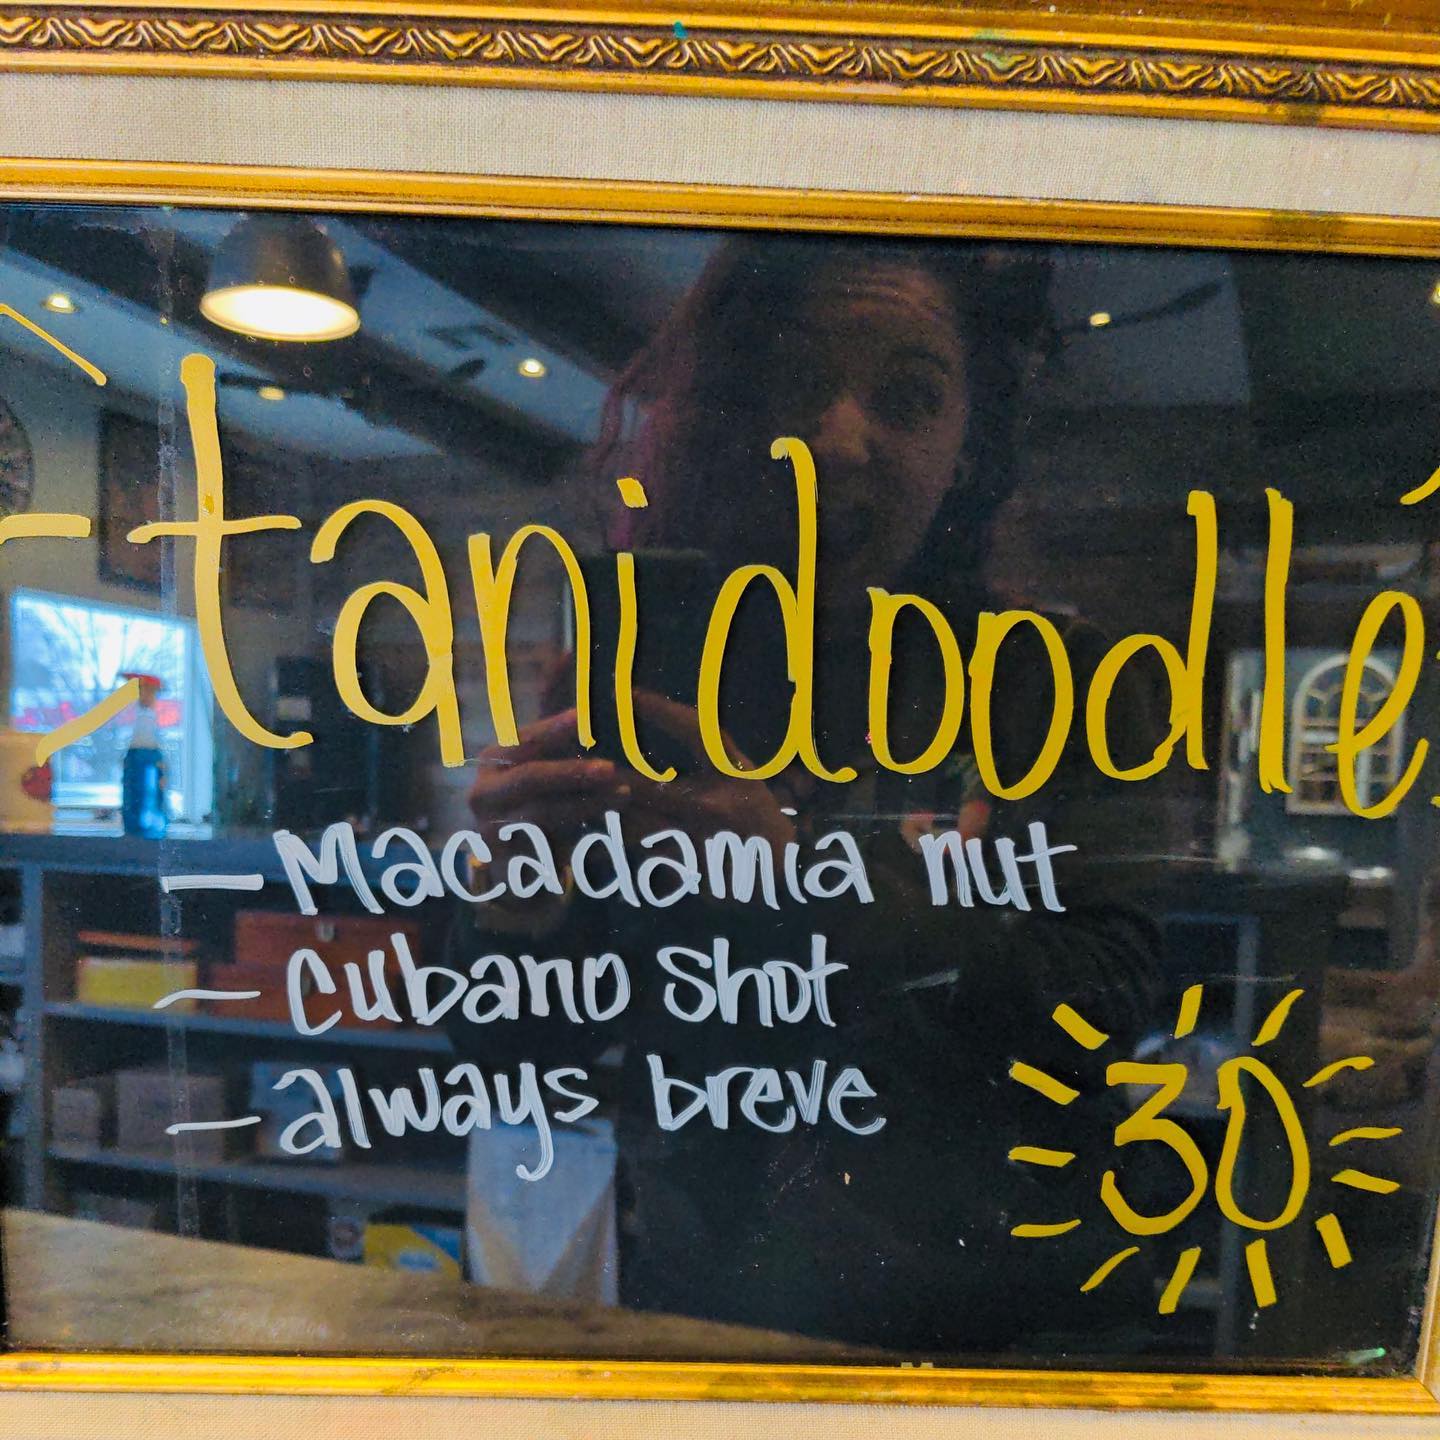 tanidoodle
- Macadamia nut
- Cubano shot
- always breve
30